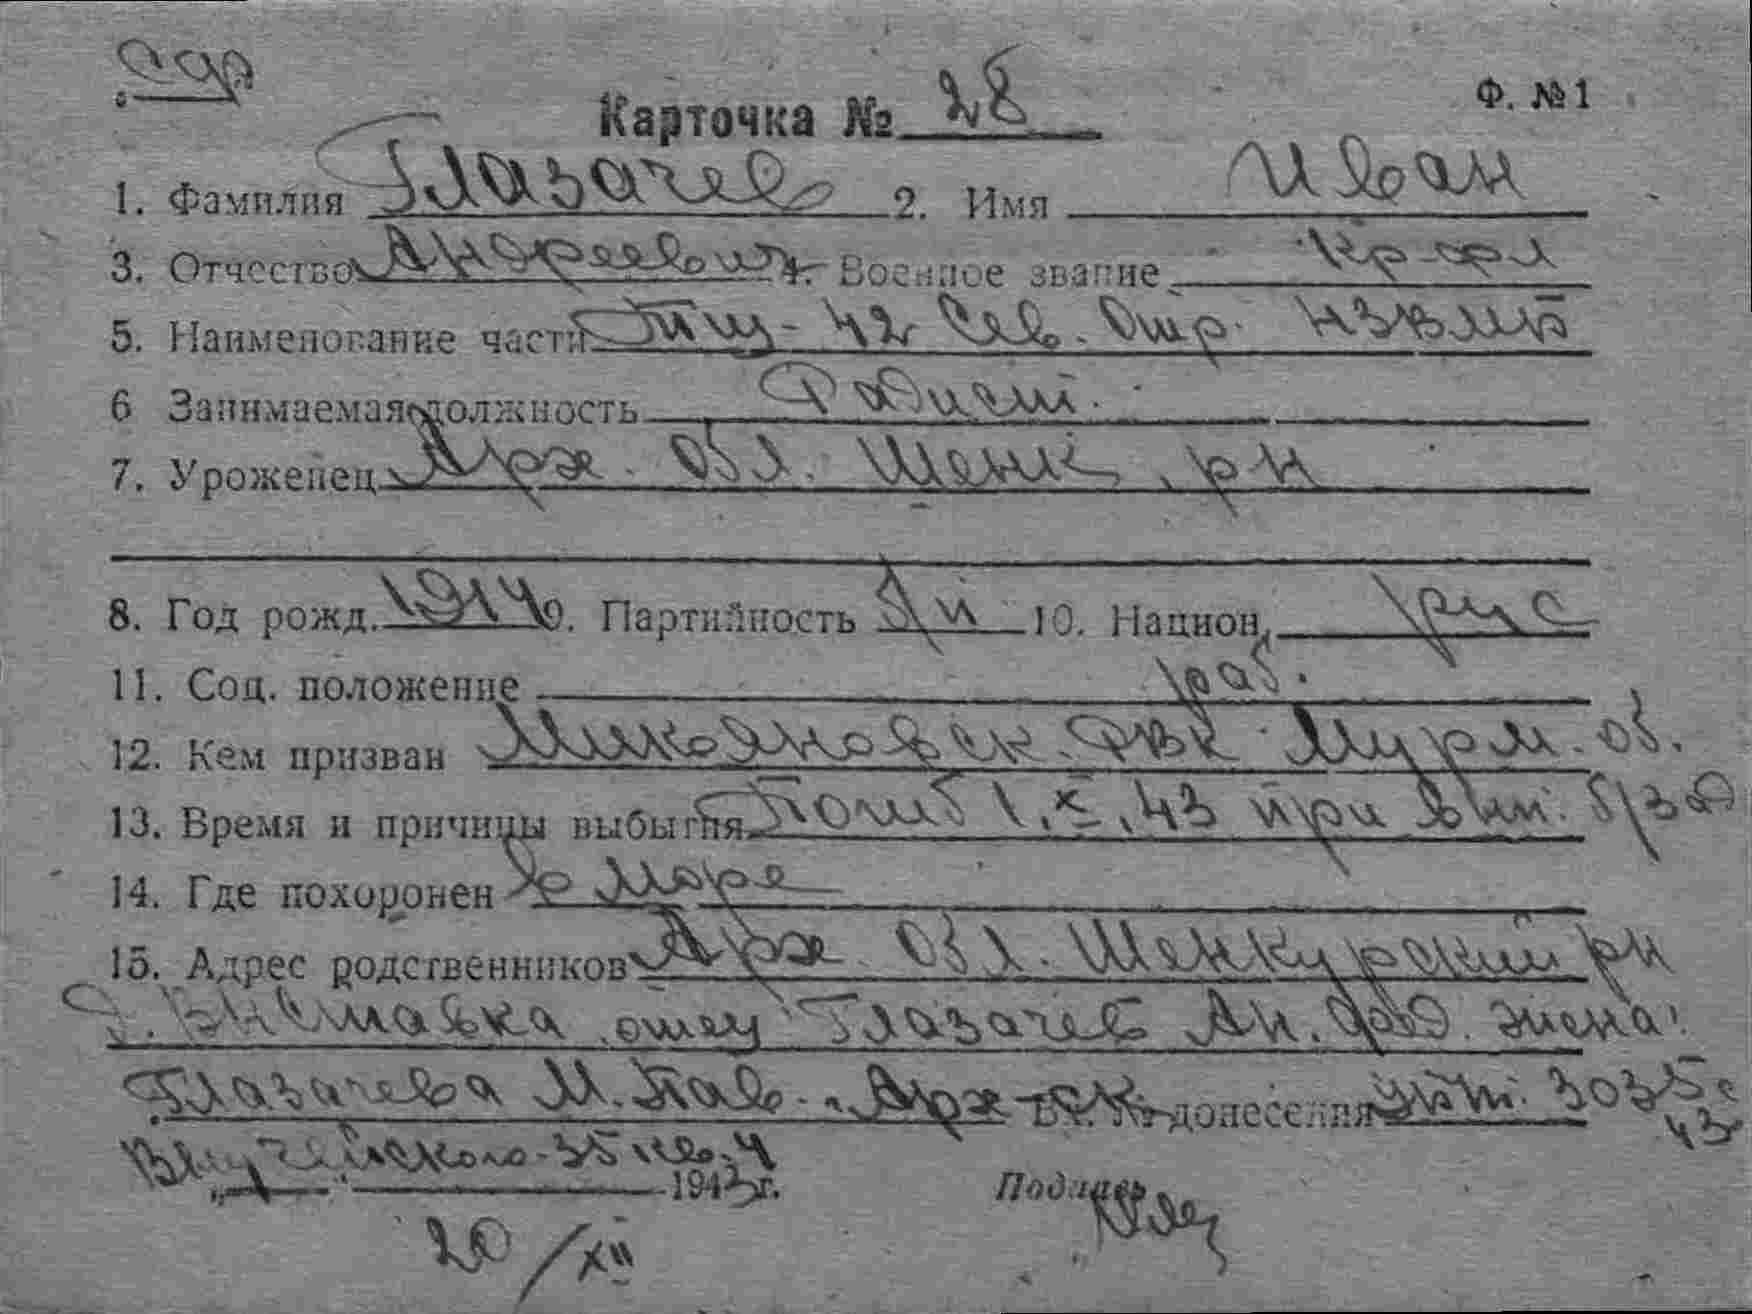 сдр
Карточка № 28 Ф. №1
1. Фамилия Глазачев 2. Имя Иван
3. Отчество Андреевич 4. Военное звание Кр-фл
5. Наименование части Тщ-42 Сев. Отр. НЗВМБ
6 Занимаемая должность Радист.
7. Уроженец Арх. Обл. Шенк. рн
8. Год рожд. 1914 9. Партийность б/п 10. Национ. рус
11. Соц. положение раб.
12. Кем призван Микояновск. РВК Мурм. об.
13. Время и причины выбытия Погиб 1.X.43 при вып. б/зад
14. Где похоронен в море
15. Адрес родственников Арх. Обл. Шенкурский рн
д. Выставка отец Глазачев Ан. Фед. жена:
Глазачева М. Пав. Арх-ск. Вх. № донесения 3035с
43
35 кв. 4
„ “ 1943г. Подпись
20/XII